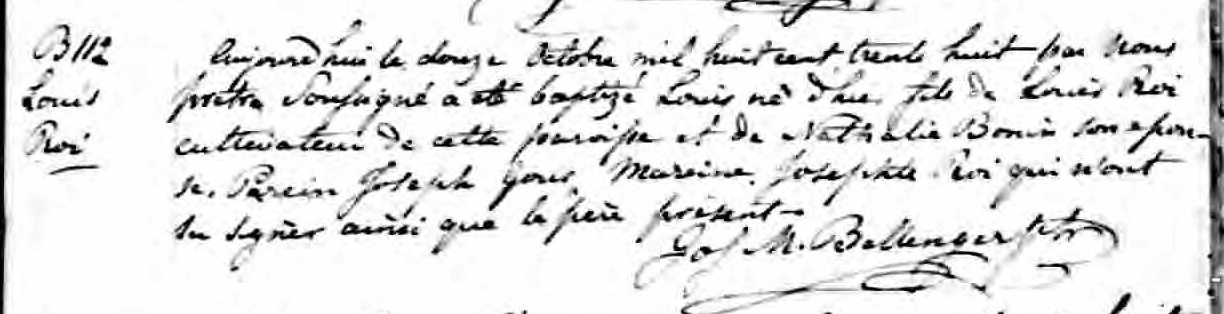 B112
Louis
Roi
Aujourd'hui le douze Octobre mil huit cent trente huit par nous
prêtre Soussigné a été baptizé Louis né d'hier fils de Louis Roi
cultivateur de cette paroisse et de Nathalie Bonin son epou-
se. Parein Joseph Mareine Josephte Roi qui n'ont
su signer ainsi que le père présent
Jos M. Bellenger ptre